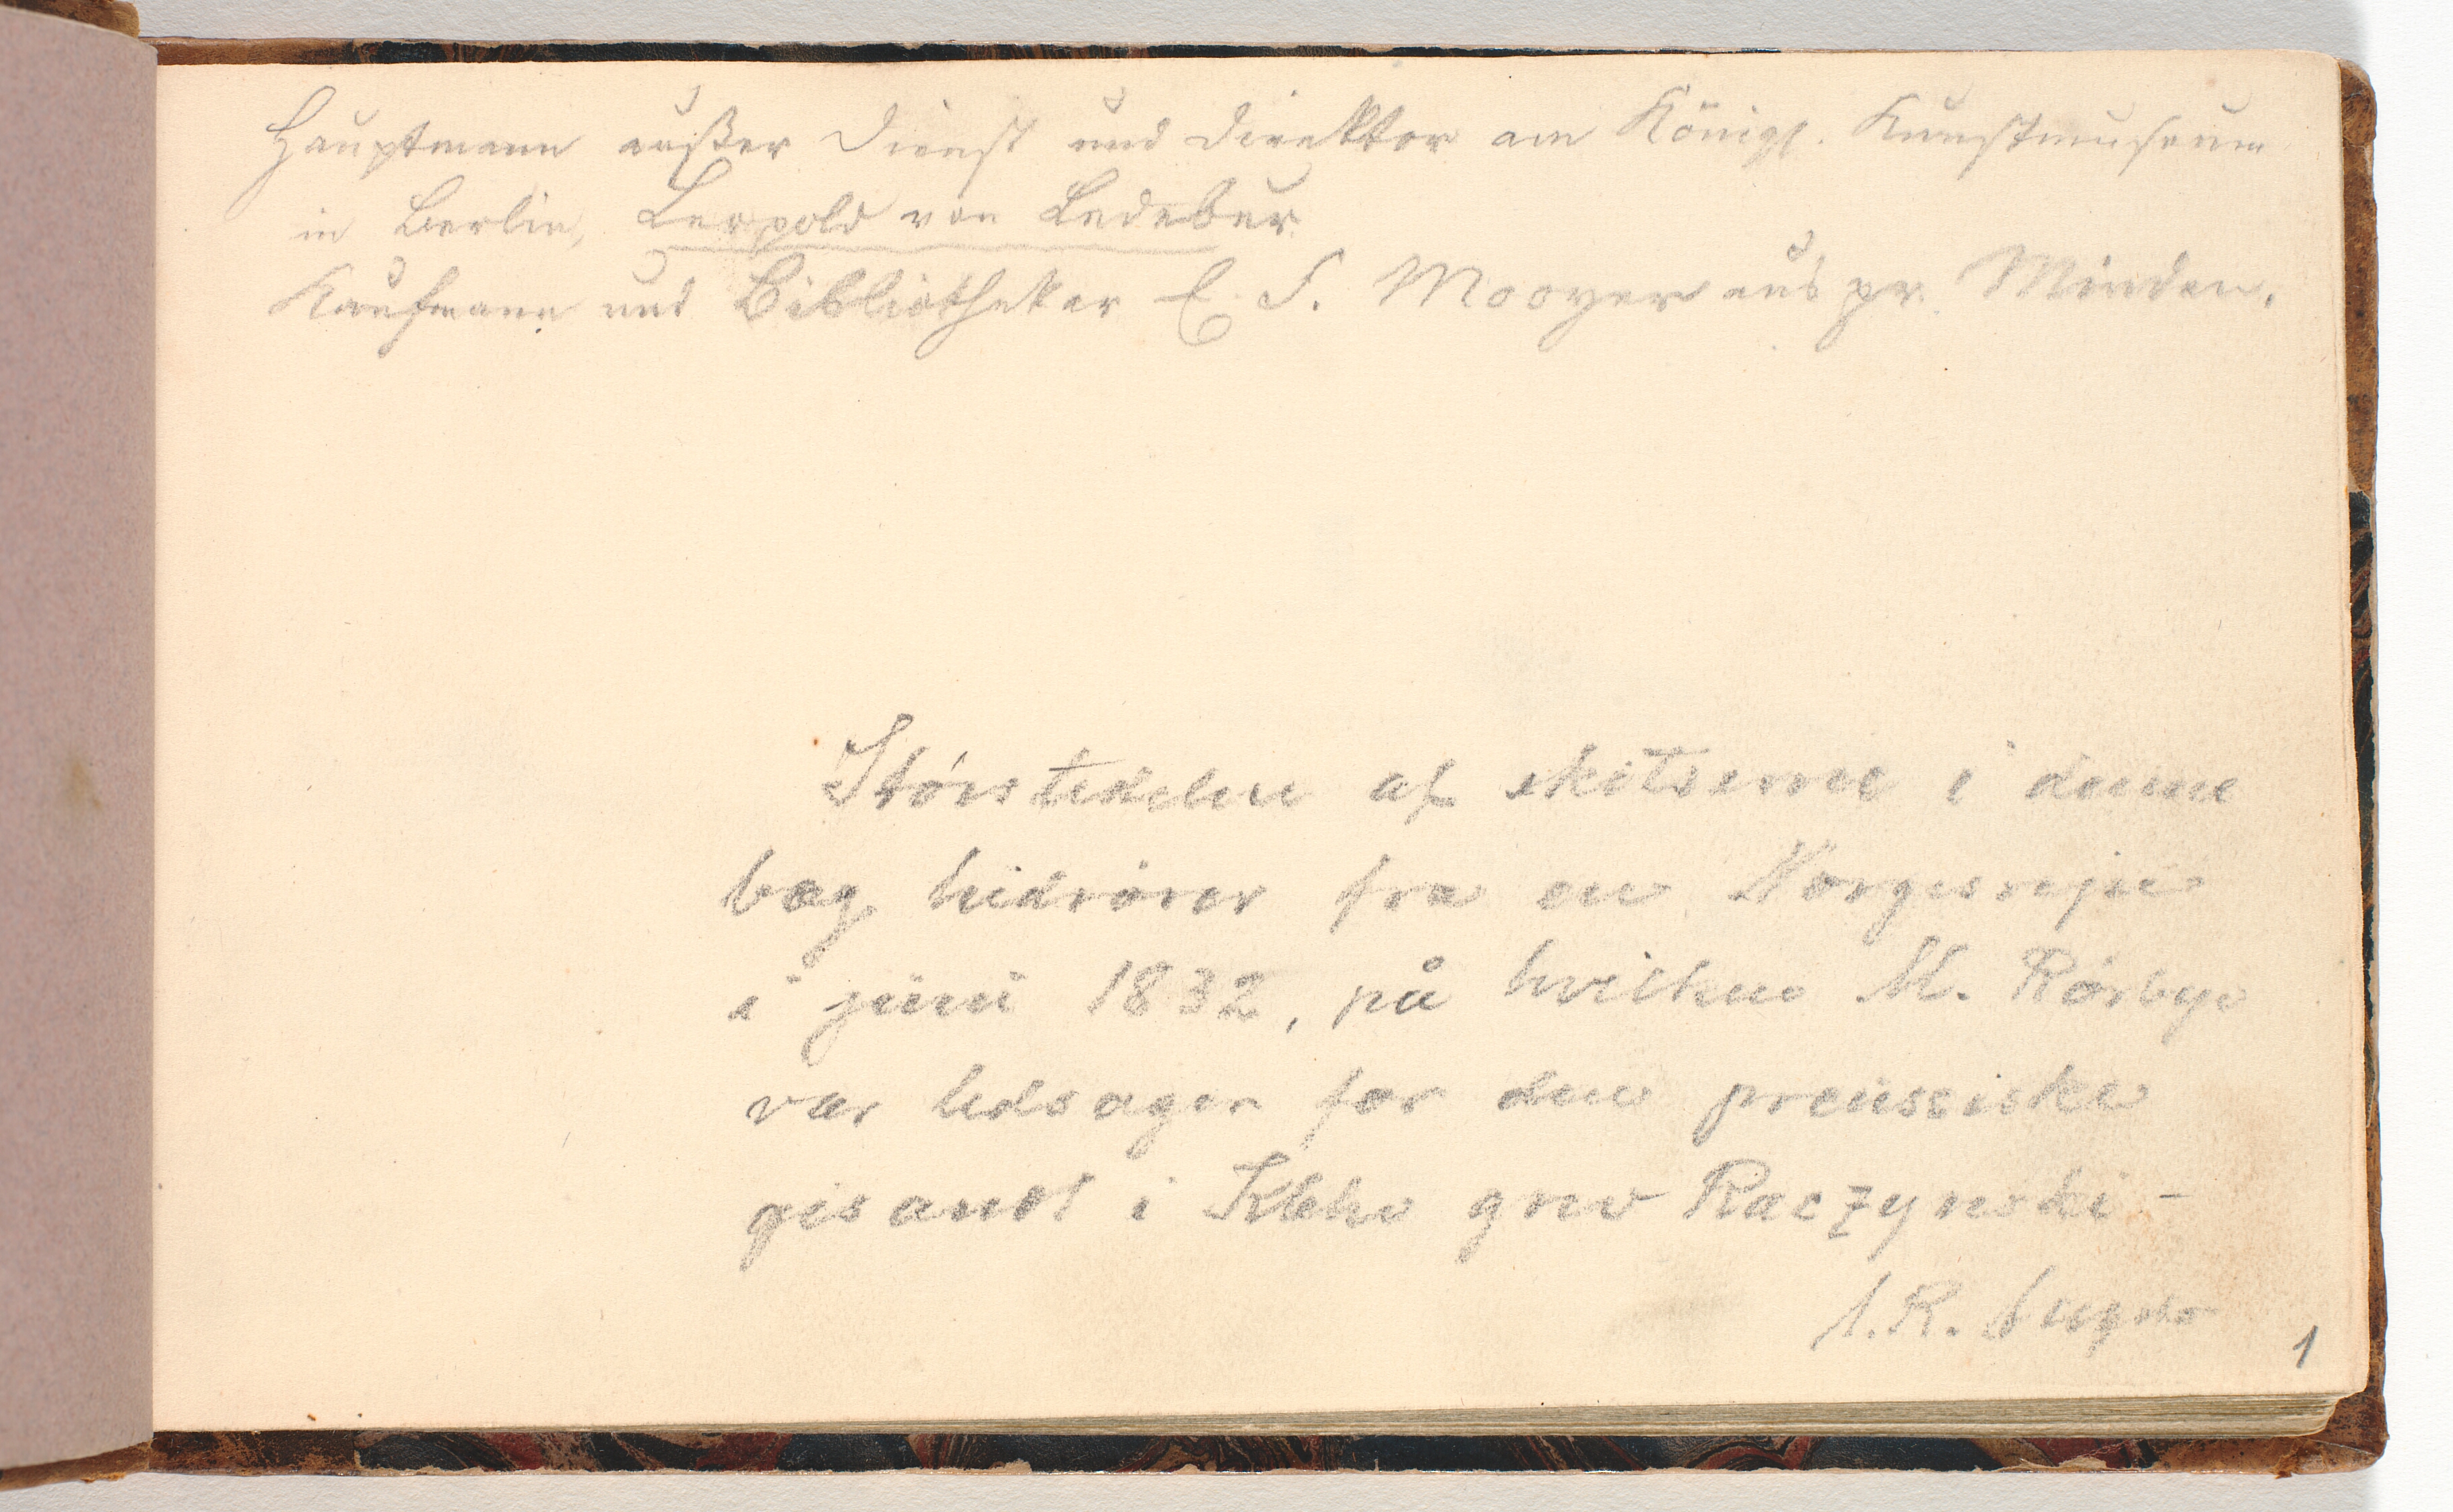 Hauptmann außer Dienst und Direktor am Königl. Kunstmuseum
in Berlin, Leopold von Ledebur
Kaufmann und Bibliothekar E. F. Mooyer aus pr. Minden.
Störstedelen af skitserne i denne
bog hidrörer fra en Norgesrejse
i juni 1832, på hvilken M. Rörbye
var ledsager for den preussiske
gesandt i Kbhv grev Raczynski -
1